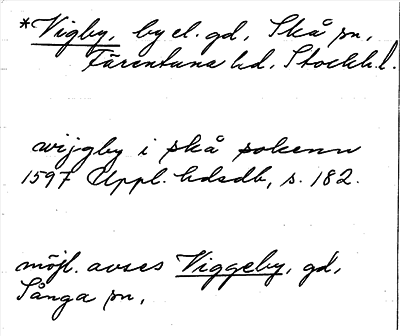 *Vigby, by el. gd, Skå sn,
Färentuna hd, Stockh.l.
wijgby i skå sokenn
1597 Uppl. hdsdb, s. 182.
möjl. avses Viggeby, gd,
Sånga sn,